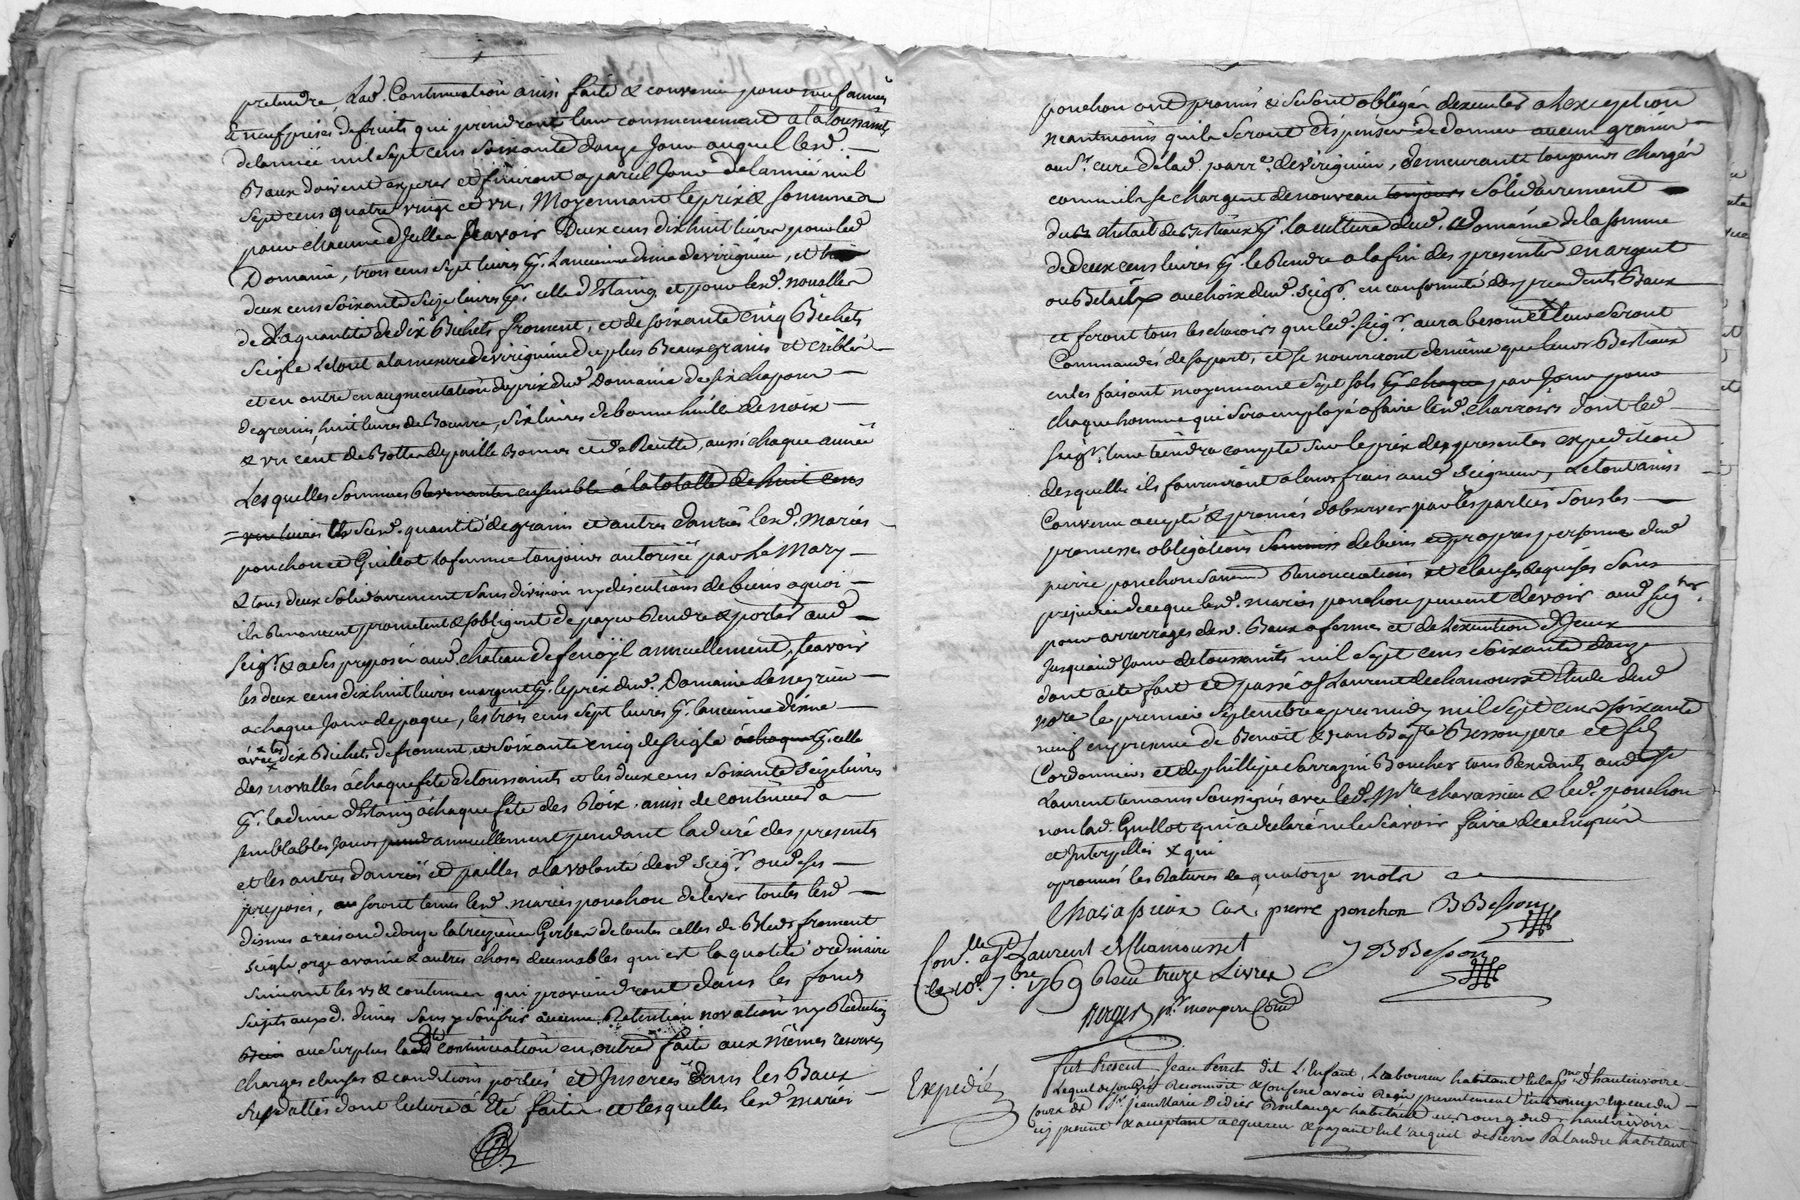 pretendre, lad. Continuation ainsi faite & convenüe pour neuf années
& neuf prises de fruits qui prendront leur commencement a la toussaints
de lannée mil sept cens soixante douze Jour auquel lesd.
Baux doivent expirer et finiront a pareil Jour de lannée mil
sept cens quatre vingt et un, Moyennant le prix & somme
pour chacune d'jcelles Sçavoir Deux cens dix huit livres pour led
Domaine, trois cens sept livres pr. lancienne dime de virigneu, et
deux cens soixante seize livres pr. celle d'Estaing et pour lesd. novalles
de la quantité de dix Bichets froment, et de soixante cinq Bichets
seigle le tout a la mesure de virigneu du plus Beau grain et criblé
et en outre en augmentation du prix dud Domaine de six chapons
de grain, huit livres de Beurre, six livres de bonne huile de noix
& un cent de Bottes de paille Bonnes et de Recette, aussi chaque année
Lesquelles sommes Revenantes ensemble à la totalle de huit cens
une livres les susd. quantité de grains et autres danrées lesd. Mariés
ponchon et Guillot la femme toujours autorisée par le Mary
& tous deux solidairement sans division ny discutions de biens a quoi
ils Renoncent promettent & sobligent de payer Rendre & porter aud
Seigr. & a ses preposés aud. chateau de fenoÿl annuellement, sçavoir
les deux cens dix huit livres en argent pr. le prix dud. Domaine de neyrieu
a chaque Jour de paque, les trois cens sept livres pr. lancienne dime
avec les dix Bichets de froment, et soixante cinq de seigle a chaque pr. celle
des novalles à chaque fête de toussaints et les deux cens soixante seize livres
pr. la dime d'Estaing à chaque fête des Roix. ainsi de continuer a
semblables Jours annuellement pendant la duré des presentes
et les autres danrées et pailles a la volonté dud seigr. ou de ses
preposés, seront tenus lesd. mariés ponchon de lever toutes lesd
dismes a raison de douze la treizieme Gerbe de toutes celles de Bleds froment
seigle, orge avoine & autres choses decimables qui est la quotité ordinaire
suivant les us & coutumes qui proviendront dans les fonds
sujets auxd. dimes sans y souffrir aucune Retention novation ny Reduction
au surplus lade continuation en outre faite aux mêmes reserves
charges clauses & conditions portées et Inserées dans les Baux
dont lecture a Eté faite et lesquelles lesd mariés
ponchon ont promis & se sont obligés dexecuter a lexception
neantmoins quils seront dispensés de donner aucun grain
au Sr. curé de lad. parre. de virigneu, demeurants toujours chargés
comme ils se chargent de nouveau toujours solidairement
du Betail de Bestiaux pr. la culture dud. Domaine de la somme
de deux cens livres pr. le Rendre a la fin des presentes en argent
ou Betail au choix dud. Seigr. en conformité des precedents Baux
et feront tous les charrois que led. seigr. aura besoin et leur seront
Commandés de sa part, et se nourriront de même que leurs Bestiaux
en les faisant moyennant sept sols pr. chaque par Jour pour
chaque homme qui sera employé a faire lesd. charrois dont led
seigr. leur tiendra compte sur le prix des presentes expedition
desquelles ils fourniront a leurs frais aud Seigneur, Le tout ainsi
Convenu accepté & promis d'observer par les parties sous les
promesses obligations soumis de biens et propres personnes dud
pierre ponchon serment Renonciations et clauses Requises sans
prejudice de ce que lesd. mariés ponchon peuvent devoir aud seigr.
pour arrerages desd. Baux a ferme et de lexecution d'Iceux
Jusquaud Jour de toussaints mil sept cens soixante douze
dont acte fait et passé a st Laurent de chamousset Etude dud
nore le premier septembre apres midy mil sept cens soixante
neuf en presence de Benoit & Jean Bapte Besson pere et fils
Cordonniers et de phillipe sarrazin Boucher tous Residants aud st
Laurent temoins soussignés avec led. Mre chavassieu & led. ponchon
non lad. Guillot qui a declaré ne le sçavoir faire de ce Enquis
et Interpellés x qui
aprouvés les Ratures de quatorze mots
Chavassieux pierre ponchon BBesson
Con.lle a St Laurent de Chamousset
Le 10e 7bre 1769 Recu treize Livres
JBBesson
Expedié
fut Present Jean Perret dit L'Enfant, Laboureur habitant
Lequel de son gré Reconnoit & Confesse avoir Reçu presentement
Sr jean Marie Didier Boulanger habitant au Bourg dud.
icy present & acceptant acquereur & payant